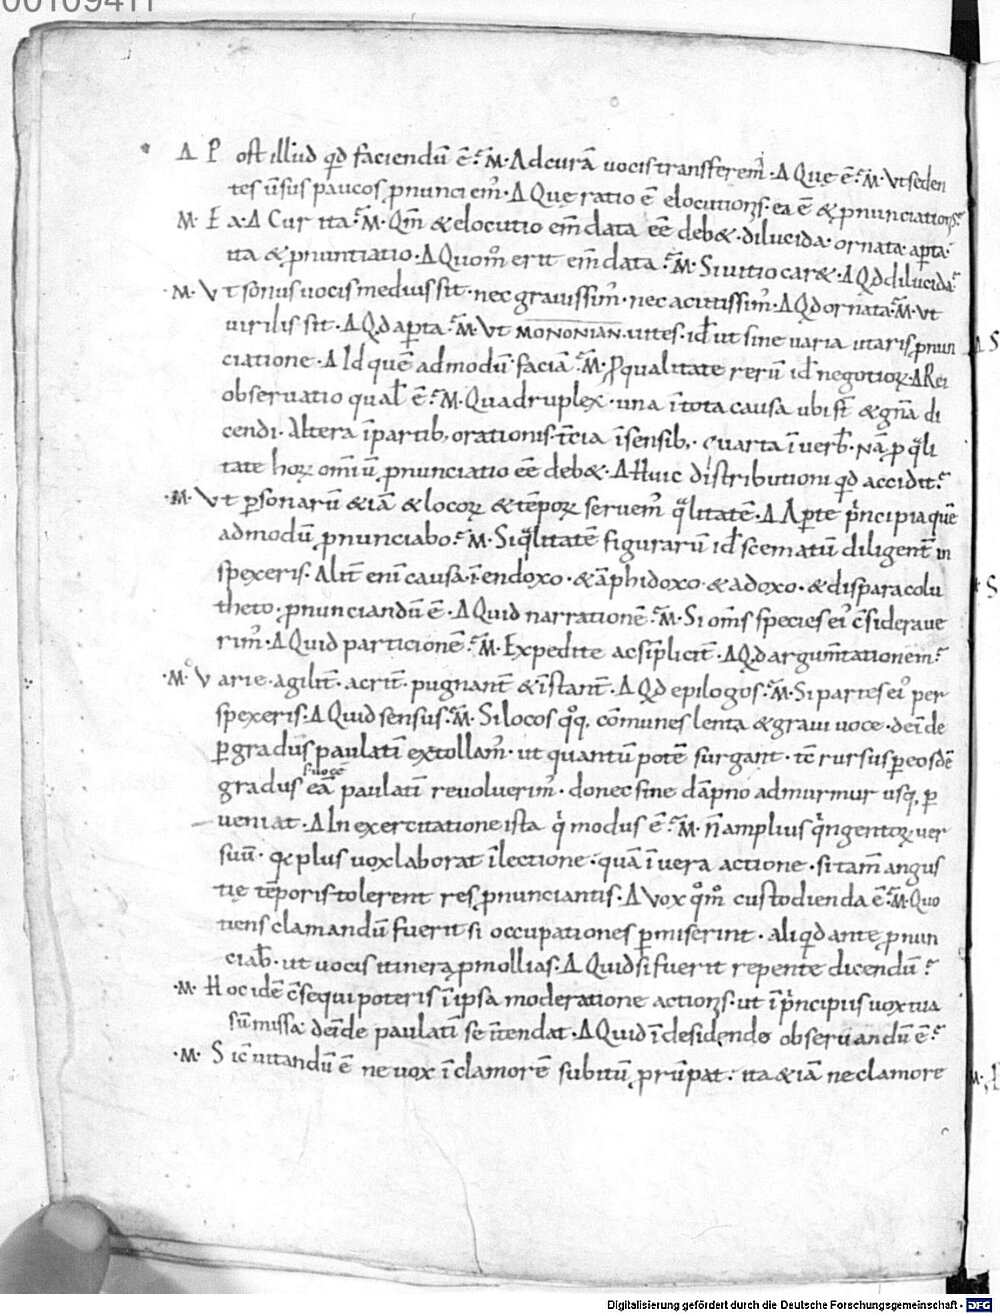 00109411
Δ P ost illud qd faciendū ē? M̄. Ad curā vocis transferem̄. Δ Quę ē? M̄. Ut seden
tes ūsus paucos p̱nunciem̄. Δ Que ratio ē elocutionis. ea ē & p̱nunciationis?
M. Ea. Δ Cur ita? M̄. Qm̄ & elocutio em̄data eē deb&. dilucida. ornata. apta.
ita & p̱nuntiatio. Δ Quom̊ erit em̄data? M̄. Si vitio car&. Δ Qd dilucida?
M. Ut sonus vocis medius sit. nec gravissim̄. nec acutissim̄. Δ Qd ornata? M̄. Ut
virilis sit. Δ Qd apta? M̄. Ut MONONIAN. vites. id ut sine varia utaris p̱nun
ciatione. Δ Id quē admodū faciā? M̄. P̱ qualitate rerū id negotioꝝ. Δ Rei
observatio qual ē? M̄. Quadruplex. una ī tota causa ubi st̄ & gn̄a di
cendi. Altera ī partib; orationis. t̄cia ī sensib;. quarta ī verb. Nā p̱ q̄li
tate hoꝝ omīū p̱nunciatio eē deb&. Δ Huic distributioni qd accidit?
M. Ut p̱sonarū &iā & locoꝝ & tēpoꝝ servem̄ q̄litatē. Δ Ap̱te p̄ncipia quē
admodū p̱nunciabo? M̄. Si q̄litatē figurarū id scematū diligent̄ in
spexeris. Alit̄ enī causa ī endoxo. & āphidoxo. & adoxo. & disparacolu
theto. p̱nunciandū ē. Δ Quid narrationē? M̄. Si om̄s species ei' c̄siderave
rim̄. Δ Quid particionē? M̄. Expedite ac sīplicit̄. Δ Qd argum̄tationem?
M̊. Varie. agilit̄. acrit̄. pugnant̄ & īstant̄. Δ Qd epilogos? M̄. Si partes ei' per
spexeris. Δ Quid sensus? M̄. Si locos q̊q. cōmunes lenta & gravi voce. deīde
p̱ gradus paulatī extollam̄. ut quantū potē surgant. tc̄ rursus p̱ eosdē
gradus eā suī vocē paulatī revoluerim̄. donec sine dāpno ad murmur usq; p̱
veniat. Δ In exercitatione ista q̄ modus ē? M̄. n̄ amplius q̄ngentoꝝ ver
suū. qꝛ plus vox laborat ī lectione. quā ī vera actione. si tam̄ angus
tię tēporis tolerent res p̱nunciantis. Δ Vox q̊m̊ custodienda ē? M̄. Quo
tiens clamandū fuerit si occupationes p̱miserint. aliqd ante p̱nun
ciab. ut vocis itinera p̱mollias. Δ Quid si fuerit repente dicendū?
M. Hoc idē c̄sequi poteris ī ipsa moderatione actionis. ut ī p̄ncipiis vox tua
sūmissa deīde paulatī se ītendat. Δ Quid ī desidendo observandū ē?
M. Sic vitandū ē ne vox ī clamorē subitū p̱rūpat. ita &iā ne clamore
Digitalisierung gefördert durch die Deutsche Forschungsgemeinschaft - DFG